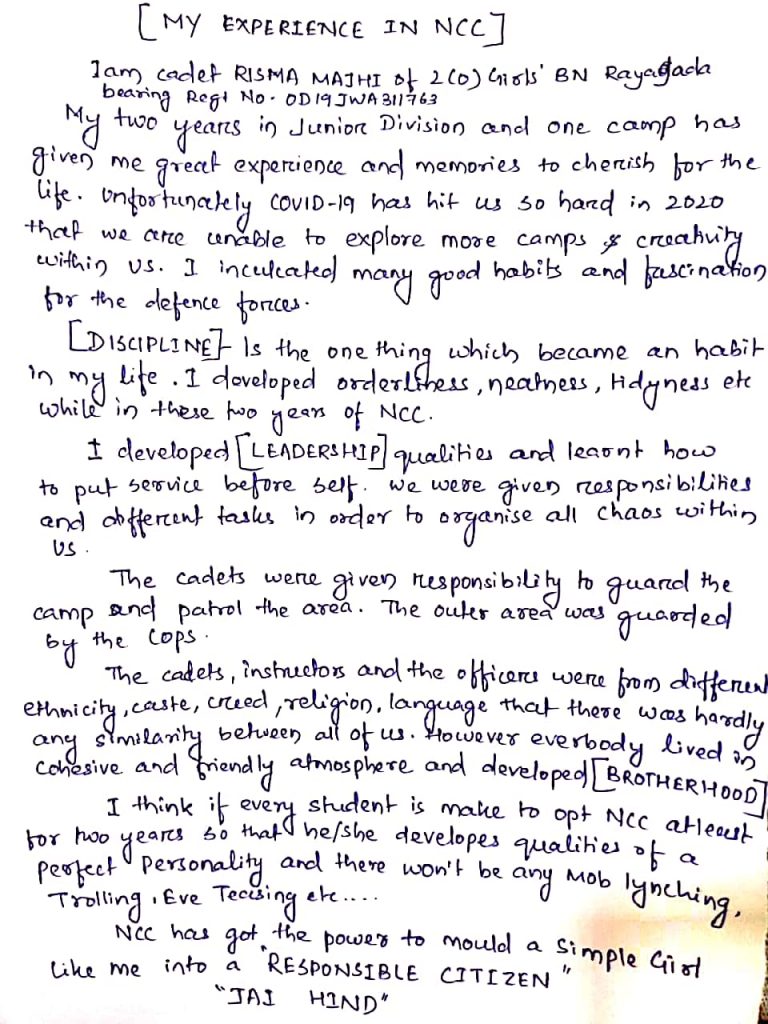 [MY EXPERIENCE IN NCC]
I am cadet RISMA MAJHI of 2(O) Girls' BN Rayagada
bearing Regt No. OD19JWA311763
My two years in Junior Division and one camp has
given me great experience and memories to cherish for the
life. Unfortunately COVID-19 has hit us so hard in 2020
that we are unable to explore more camps & creativity
within us. I inculcated many good habits and fascination
for the defence forces.
[DISCIPLINE] Is the one thing which became an habit
in my life. I developed orderliness, neatness, tidyness etc
while in these two years of NCC.
I developed [LEADERSHIP] qualities and learnt how
to put service before self. we were given responsibilities
and different tasks in order to organise all chaos within
us.
The cadets were given responsibility to guard the
camp and patrol the area. The outer area was guarded
by the cops.
The cadets, instructors and the officers were from different
ethnicity, caste, creed, religion, language that there was hardly
any similarity between all of us. However everbody lived in
cohesive and friendly atmosphere and developed [BROTHERHOOD]
I think if every student is make to opt NCC atleast
for two years so that he/she developes qualities of a
Perfect Personality and there won't be any Mob lynching,
Trolling, Eve Teasing etc....
NCC has got the power to mould a simple Girl
like me into a "RESPONSIBLE CITIZEN"
"JAI HIND"